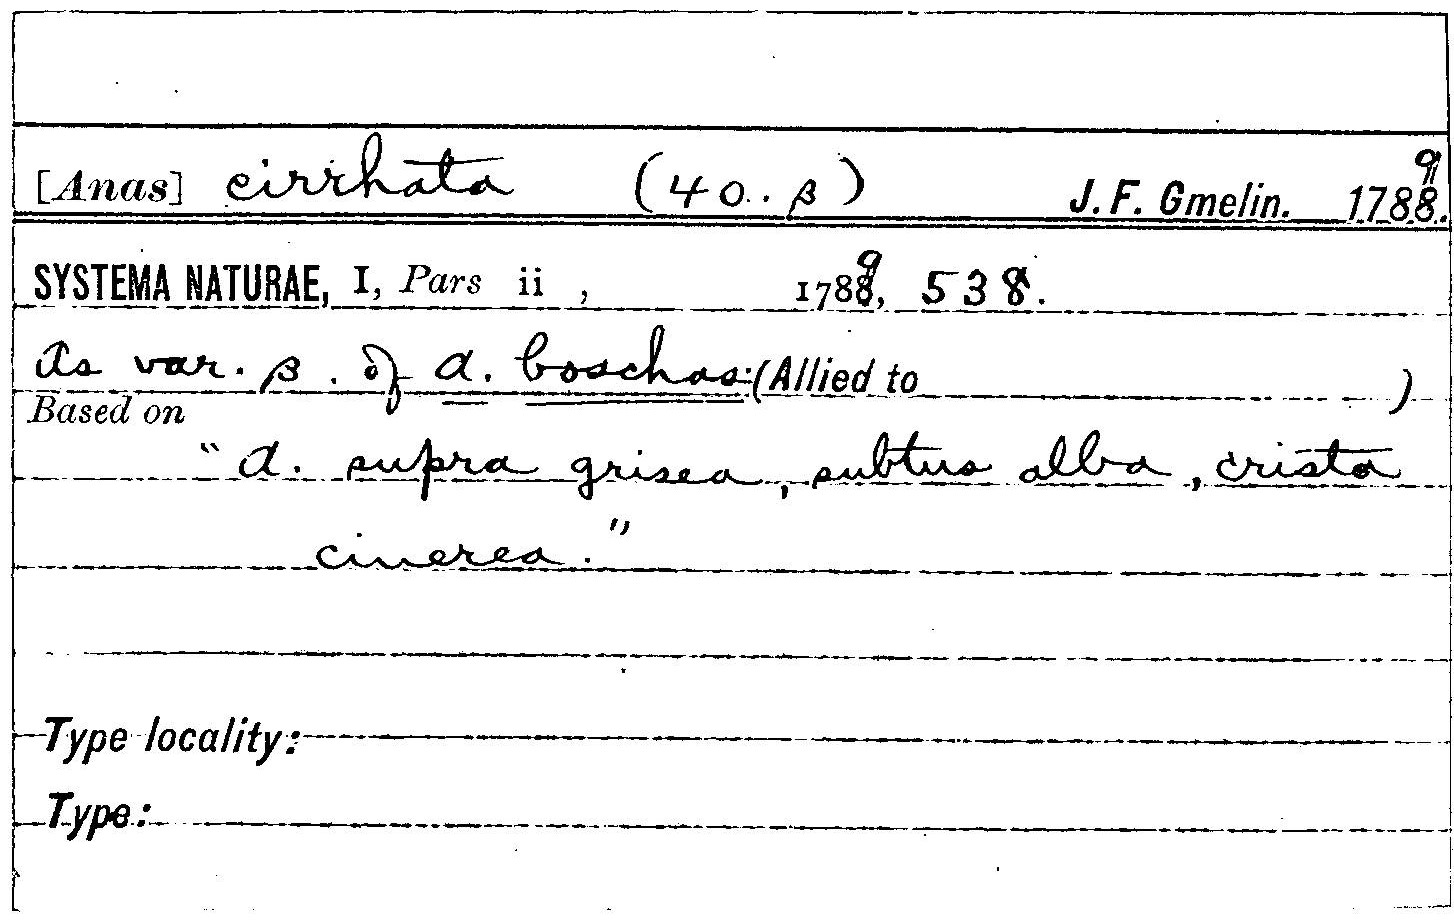 [Anas] cirrhata (40..β) J. F. Gmelin. 1789.
SYSTEMA NATURAE, I, Pars ii , 1789, 538.
As var. β. of A. boschas: (Allied to )
Based on
"A. supra grisea, subtus alba, crista
cinerea."
Type locality:
Type: